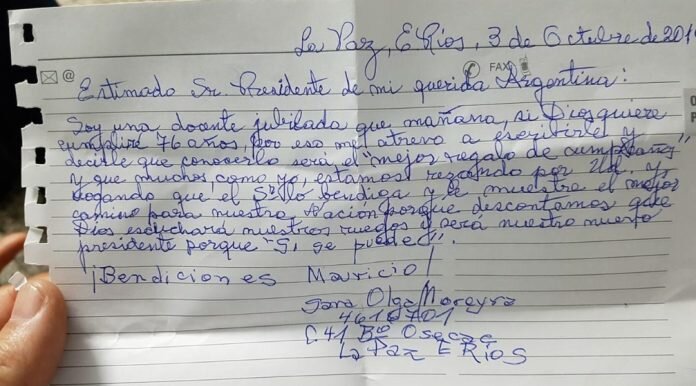 La Paz, E Ríos, 3 de Octubre de 201
@
FAX
Estimado Sr. Presidente de mi querida Argentina:
Soy una docente jubilada que mañana, si Dios quiere
cumpliré 76 años, por eso me atrevo a escribirle y
decirle que conocerlo será el "mejor regalo de cumpleaños"
y que muchos, como yo, estamos rezando por Ud. y
rogando que el Sr lo bendiga y le muestre el mejor
camino para nuestra Nación porque descontamos que
Dios escuchará nuestros ruegos y será nuestro nuevo
presidente porque "Sí, se puede!".
¡Bendiciones Mauricio!
Sara Olga Moreyra
4610701
C.41 Bº Osecac
La Paz E Ríos